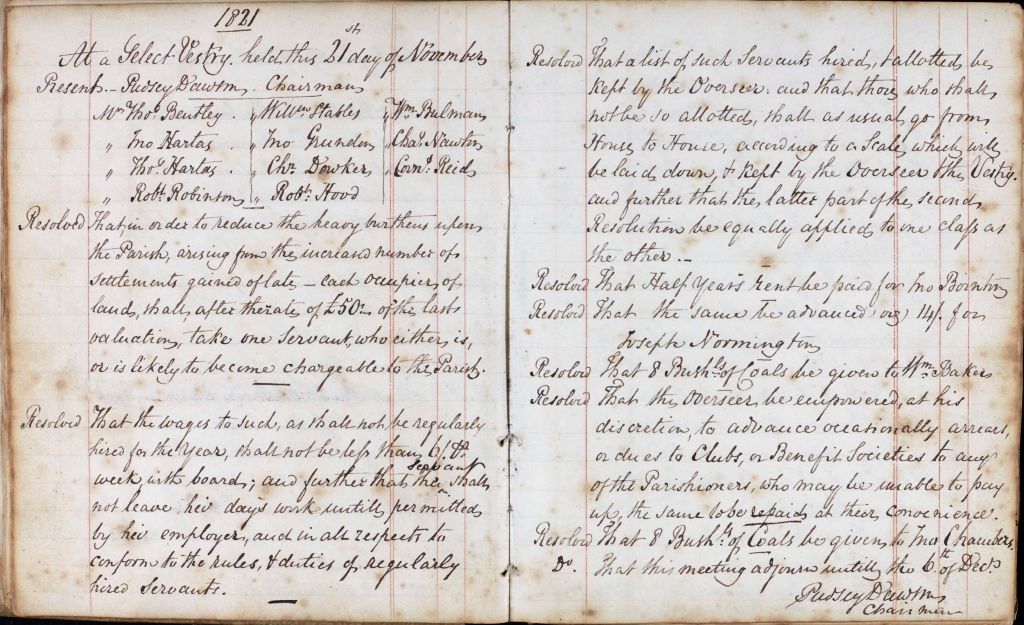 1821
At a Select Vestry held this 21st day of November
Present - Pudsey Dawson Chairman
Mr. Thos. Bentley. „ Willm. Stables „ Wm. Bulman
„ Jno Hartas. „ Jno Grundon „ Chas. Newton
„ Thos. Hartas. „ Chr. Dowker „ Corns. Reid
„ Robt. Robinson „ Robt. Hood
Resolved That in order to reduce the heavy burthens upon
the Parish, arising from the increased number of
settlements gained of late - each occupier of
land, shall, after the rate of £50 of the last
valuation, take one Servant, who either is,
or is likely to become chargeable to the Parish.
Resolved That the wages to such, as shall not be regularly
hired for the Year, shall not be less than 6d. a
week with board; and further that the Servant shall
not leave his day's work untill permitted
by his employer, and in all respects to
conform to the rules, & duties of regularly
hired Servants.
Resolved That a list of such Servants hired, & allotted, be
kept by the Overseer: and that those who shall
not be so allotted, shall as usual go from
House to House, according to a Scale which will
be laid down, & kept by the Overseer & the Vestry.
and further that the latter part of the second
Resolution be equally applied to one class as
the other. -
Resolved That Half Years rent be paid for Jno Bointon
Resolved That the same be advanced 14/. for
Joseph Normington
Resolved That 8 Bushls. of Coals be given to Wm. Baker
Resolved That the Overseer be empowered, at his
discretion, to advance occasionally arrears,
or dues to Clubs, or Benefit Societies to any
of the Parishioners, who may be unable to pay
up, the same to be repaid at their convenience.
Resolved That 8 Bushls. of Coals be given to Jno Chambers.
Do. That this meeting adjourn untill the 6th of Decr.
Pudsey Dawson
Chairman